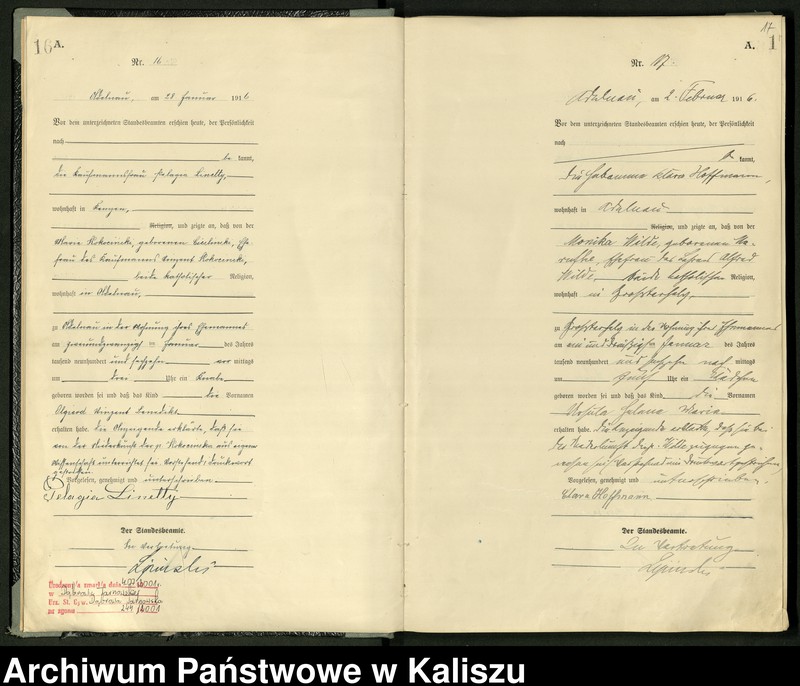 16
A.
Nr. 16
Adelnau, am 28 Januar 1916
Vor dem unterzeichneten Standesbeamten erschien heute, der Persönlichkeit
nach
be kannt,
die Kaufmannsfrau Pelagia Linetty,
wohnhaft in Kempen,
Religion, und zeigte an, daß von der
Maria Rokocinska, geborenen Ehe-
frau des Kaufmanns Vinzent Rokocinski,
beide katholischer Religion,
wohnhaft in Adelnau,
zu Adelnau in der Wohnung ihres Ehemannes
am Januar des Jahres
tausend neunhundert und sechzehn vor mittags
um drei Uhr ein Knabe
geboren worden sei und daß das Kind die Vornamen
Vinzent Benedikt
erhalten habe. Die Anzeigende erklärte, daß sie
von der Niederkunft der p. Rokocinska aus eigener
Wissenschaft unterrichtet sei. Vorstehend Druckwort
gestrichen.
Vorgelesen, genehmigt und unterschrieben
Pelagia Linetty
Der Standesbeamte.
In Vertretung
Lipinski
17
A. 1
Nr. 17.
Adelnau, am 2. Februar 1916.
Vor dem unterzeichneten Standesbeamten erschien heute, der Persönlichkeit
nach
be kannt,
die Hebamme Klara Hoffmann,
wohnhaft in Adelnau
Religion, und zeigte an, daß von der
Monika Wilde, geborenen
Ehefrau des Alfred
Wilde, beide katholischer Religion,
wohnhaft in
zu in der Wohnung ihres Ehemannes
am ein und dreißigsten Januar des Jahres
tausend neunhundert und sechzehn nach mittags
um Uhr ein Mädchen
geboren worden sei und daß das Kind die Vornamen
Ursula Helene Maria
erhalten habe. Die Anzeigende erklärte, daß sie bei
der Niederkunft der p. Wilde zugegen ge-
wesen sei.
Vorgelesen, genehmigt und unterschrieben,
Clara Hoffmann
Der Standesbeamte.
In Vertretung
Lipinski
w Dąbrowy Tarnowskiej
Urz. St. Cyw. Dąbrowa Tarnowska
Archiwum Państwowe w Kaliszu